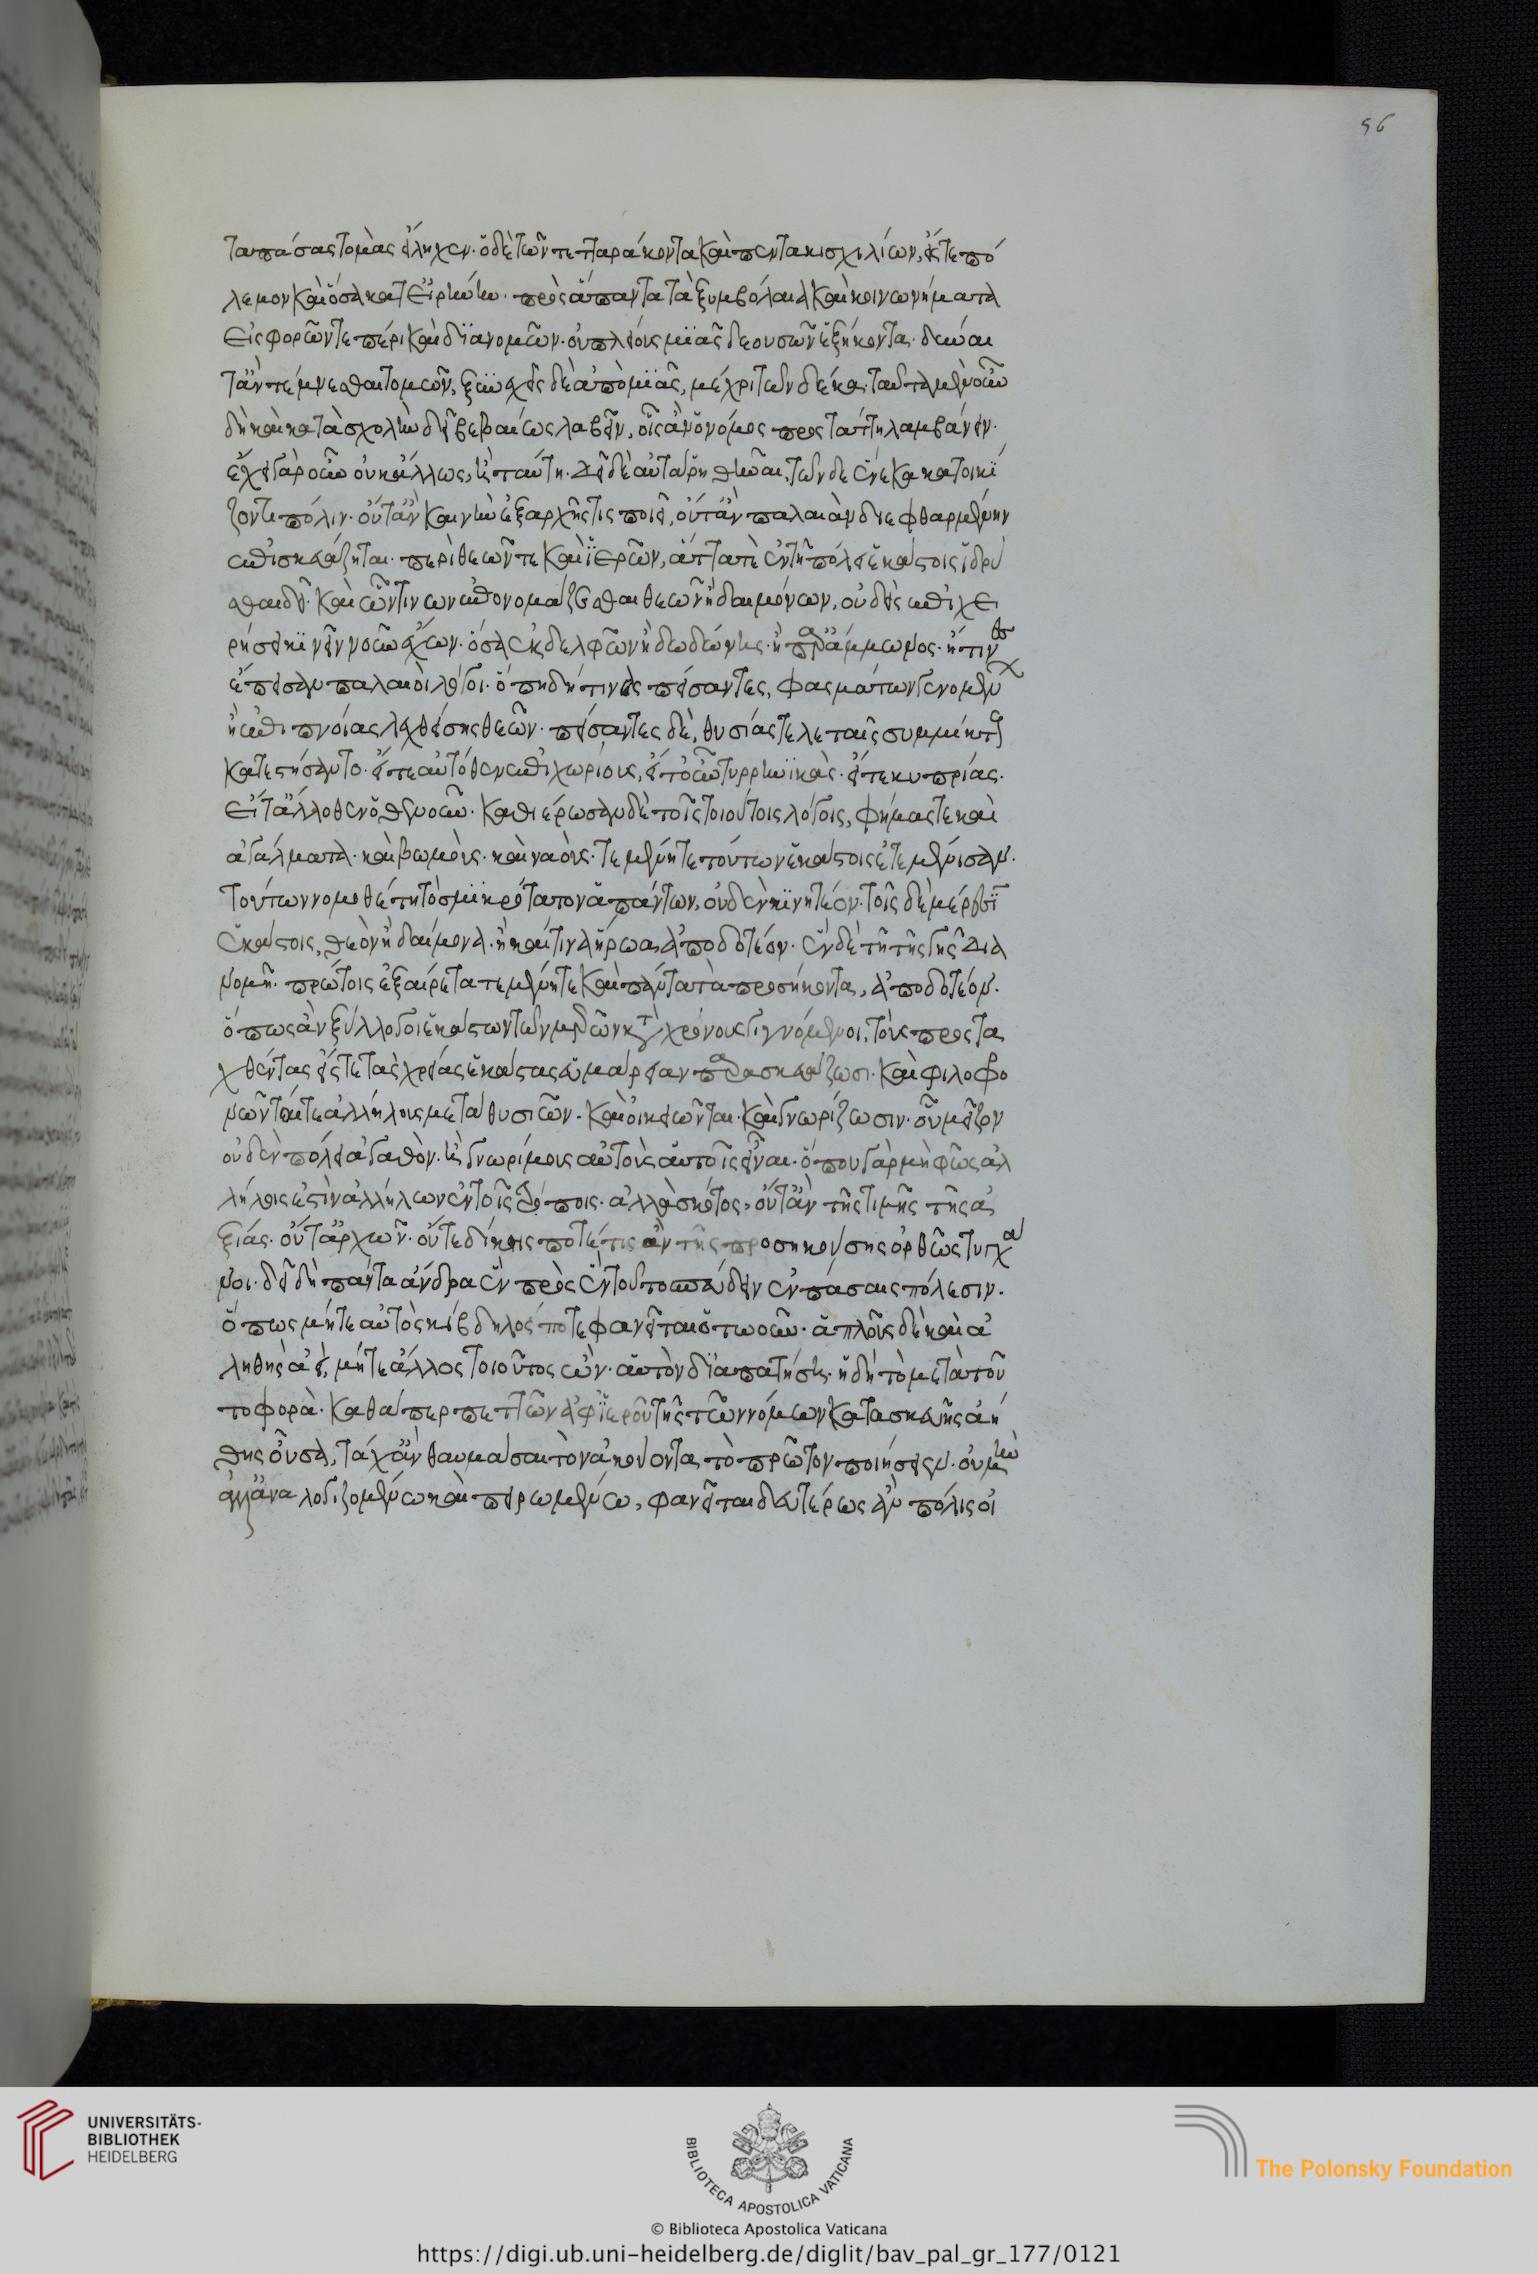 τα πάσας τομὰς εἴληχεν· ὁ δὲ τῶν τετταράκοντα καὶ πεντακισχιλίων, εἴς τε πό
λεμον καὶ ὅσα κατ εἰρήνην· πρὸς ἅπαντα τὰ ξυμβόλαια καὶ κοινωνήματα
εἰσφορῶν τε πέρι καὶ διανομῶν· οὐ πλείους μιᾶς δεουσῶν ἑξήκοντα· δύναι
τ᾽ ἂν τέμνεσθαι τομῶν, ξυνεχεῖς δὲ ἀπὸ μιᾶς, μέχρι τῶν δέκα· ταῦτα μὲν οὖν
δὴ καὶ κατὰ σχολὴν δεῖ βεβαίως λαβεῖν, οἷς ἂν ὁ νόμος προστάττῃ λαμβάνειν·
ἔχει γὰρ οὖν οὐκ ἄλλως, ἢ ταύτῃ· δεῖ δὲ αὐτὰ ῥηθῆναι, τῶνδε ἕνεκα κατοικί
ζοντι πόλιν· οὔτ᾽ ἂν καινὴν ἐξ ἀρχῆς τις ποιεῖ, οὔτ᾽ ἂν παλαιὰν διεφθαρμένην
ἐπισκευάζηται· περὶ θεῶν τε καὶ ἱερῶν, ἅττα τε ἐν τῇ πόλει ἑκάστοις ἱδρύ
σθαι δεῖ· καὶ ὧν τινων ἐπονομάζεσθαι θεῶν ἢ δαιμόνων, οὐδεὶς ἐπιχει
ρήσει κινεῖν νοῦν ἔχων· ὅσα ἐκ δελφῶν ἢ δωδώνης· ἢ παρ᾽ ἄμμωνος· ἤ τινας
ἔπεισαν παλαιοὶ λόγοι· ὅπῃ δή τινὰς πείσαντες, φασμάτων γενομένων
ἢ ἐπιπνοίας λεχθείσης θεῶν· πείσαντες δὲ, θυσίας τελεταῖς συμμίκτους
κατεστήσαντο· εἴτε αὐτόθεν ἐπιχωρίους, εἴτ᾽ οὖν τυρρηνικὰς· εἴτε κυπρίας·
εἴτ᾽ ἄλλοθεν ὅθεν οὖν· καθιέρωσαν δὲ τοῖς τοιούτοις λόγοις, φήμας τε καὶ
ἀγάλματα· καὶ βωμοὺς· καὶ ναοὺς· τεμένη τε τούτων ἑκάστοις ἐτεμένισαν·
τούτων νομοθέτῃ τὸ σμικρότατον ἁπάντων, οὐδὲν κινητέον· τοῖς δὲ μέρεσιν
ἑκάστοις, θεὸν ἢ δαίμονα· ἢ καί τινα ἥρωα, ἀποδοτέον· ἐν δὲ τῇ τῆς γῆς δια
νομῇ· πρώτοις ἐξαίρετα τεμένη τε καὶ πάντα τὰ προσήκοντα, ἀποδοτέον·
ὅπως ἂν ξύλλογοι ἑκάστων τῶν μερῶν κατὰ χρόνους γιγνόμενοι, τοὺς προστα
χθέντας εἴς τε τὰς χρείας ἑκάστας εὐμάρειαν παρασκευάζωσι· καὶ φιλοφρο
νῶνταί τε ἀλλήλους μετὰ θυσιῶν· καὶ οἰκειῶνται· καὶ γνωρίζωσιν· οὗ μεῖζον
οὐδὲν πόλει ἀγαθὸν· ἢ γνωρίμους αὐτοὺς αὑτοῖς εἶναι· ὅπου γὰρ μὴ φῶς ἀλ
λήλοις ἐστὶν ἀλλήλων ἐν τοῖς τρόποις· ἀλλὰ σκότος, οὔτ᾽ ἂν τῆς τιμῆς τῆς ἀ
ξίας· οὔτ᾽ ἀρχῶν· οὔτε δίκης ποτέ τις ἂν τῆς προσηκούσης ὀρθῶς τυγχά
νοι· δεῖ δὴ πάντα ἄνδρα ἓν πρὸς ἓν τοῦτο σπεύδειν ἐν πάσαις πόλεσιν·
ὅπως μήτε αὐτὸς κίβδηλός ποτε φανεῖται ὁτῳοῦν· ἁπλοῦς δὲ καὶ ἀ
ληθὴς ἀεὶ, μήτε ἄλλος τοιοῦτος ὢν· αὐτὸν διαπατήσει· ἡ δὴ τὸ μετὰ τοῦ
το φορὰ· καθάπερ πεττῶν ἀφ᾽ ἱεροῦ τῆς τῶν νόμων κατασκευῆς ἀή
θης οὖσα, τάχ᾽ ἂν θαυμάσαι τὸν ἀκούοντα τὸ πρῶτον ποιήσειεν· οὐ μὴν
ἀλλ᾽ ἀναλογιζομένῳ καὶ πειρωμένῳ, φανεῖται δευτέρως ἂν πόλις οἰ
56
UNIVERSITÄTS-
BIBLIOTHEK
HEIDELBERG
BIBLIOTECA APOSTOLICA VATICANA
The Polonsky Foundation
© Biblioteca Apostolica Vaticana
https://digi.ub.uni-heidelberg.de/diglit/bav_pal_gr_177/0121